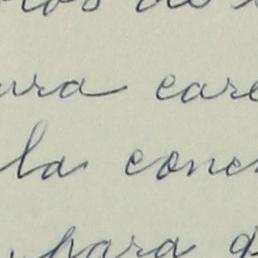 de
ura care
la conc
para q